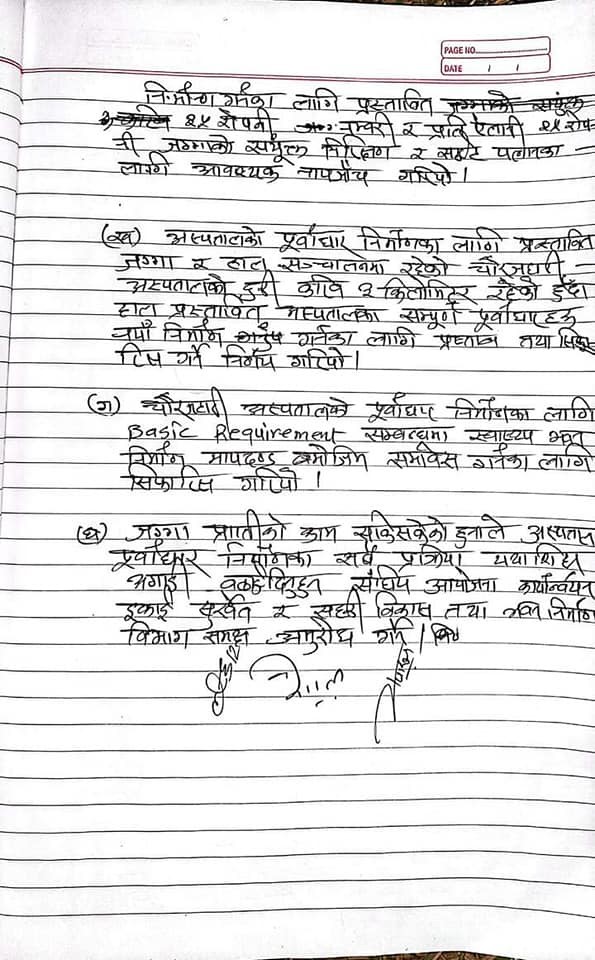 PAGE NO.
DATE / /
निर्माण गर्नका लागि प्रस्तावित जग्गाको संयुक्त
२५ रोपनी नम्बरी र प्रति ऐलानी २५ रोप
नी जग्गाको संयुक्त फिल्डिंग र साइट प्लानका
लागि आवश्यक नापजाँच गरियो।
(ख) अस्पतालको पूर्वाधार निर्माणका लागि प्रस्तावित
जग्गा र हाल सञ्चालनमा रहेको चौरजहारी
अस्पतालको दुरी करिव २ किलोमिटर रहेको हुँदा
हाल प्रस्तावित अस्पतालका सम्पूर्ण पूर्वाधारहरु
नयाँ निर्माण गर्नका लागि प्रस्ताव तथा सिफा
रिस गर्ने निर्णय गरियो।
(ग) चौरजहारी अस्पतालको पूर्वाधार निर्माणका लागि
Basic Requirement सम्वन्धमा स्वास्थ्य भवन
निर्माण मापदण्ड वमोजिम समावेस गर्नका लागि
सिफारिस गरियो।
(घ) जग्गा प्राप्तीको काम सकिसकेको हुनाले अस्पताल
पूर्वाधार निर्माणका सर्व प्रक्रिया यथाशिघ्र
अगाडी वढाईदिनुहुन संघिय आयोजना कार्यान्वयन
इकाई सुर्खेत र सहरी विकास तथा भवन निर्माण
विभाग समक्ष अनुरोध गर्ने।